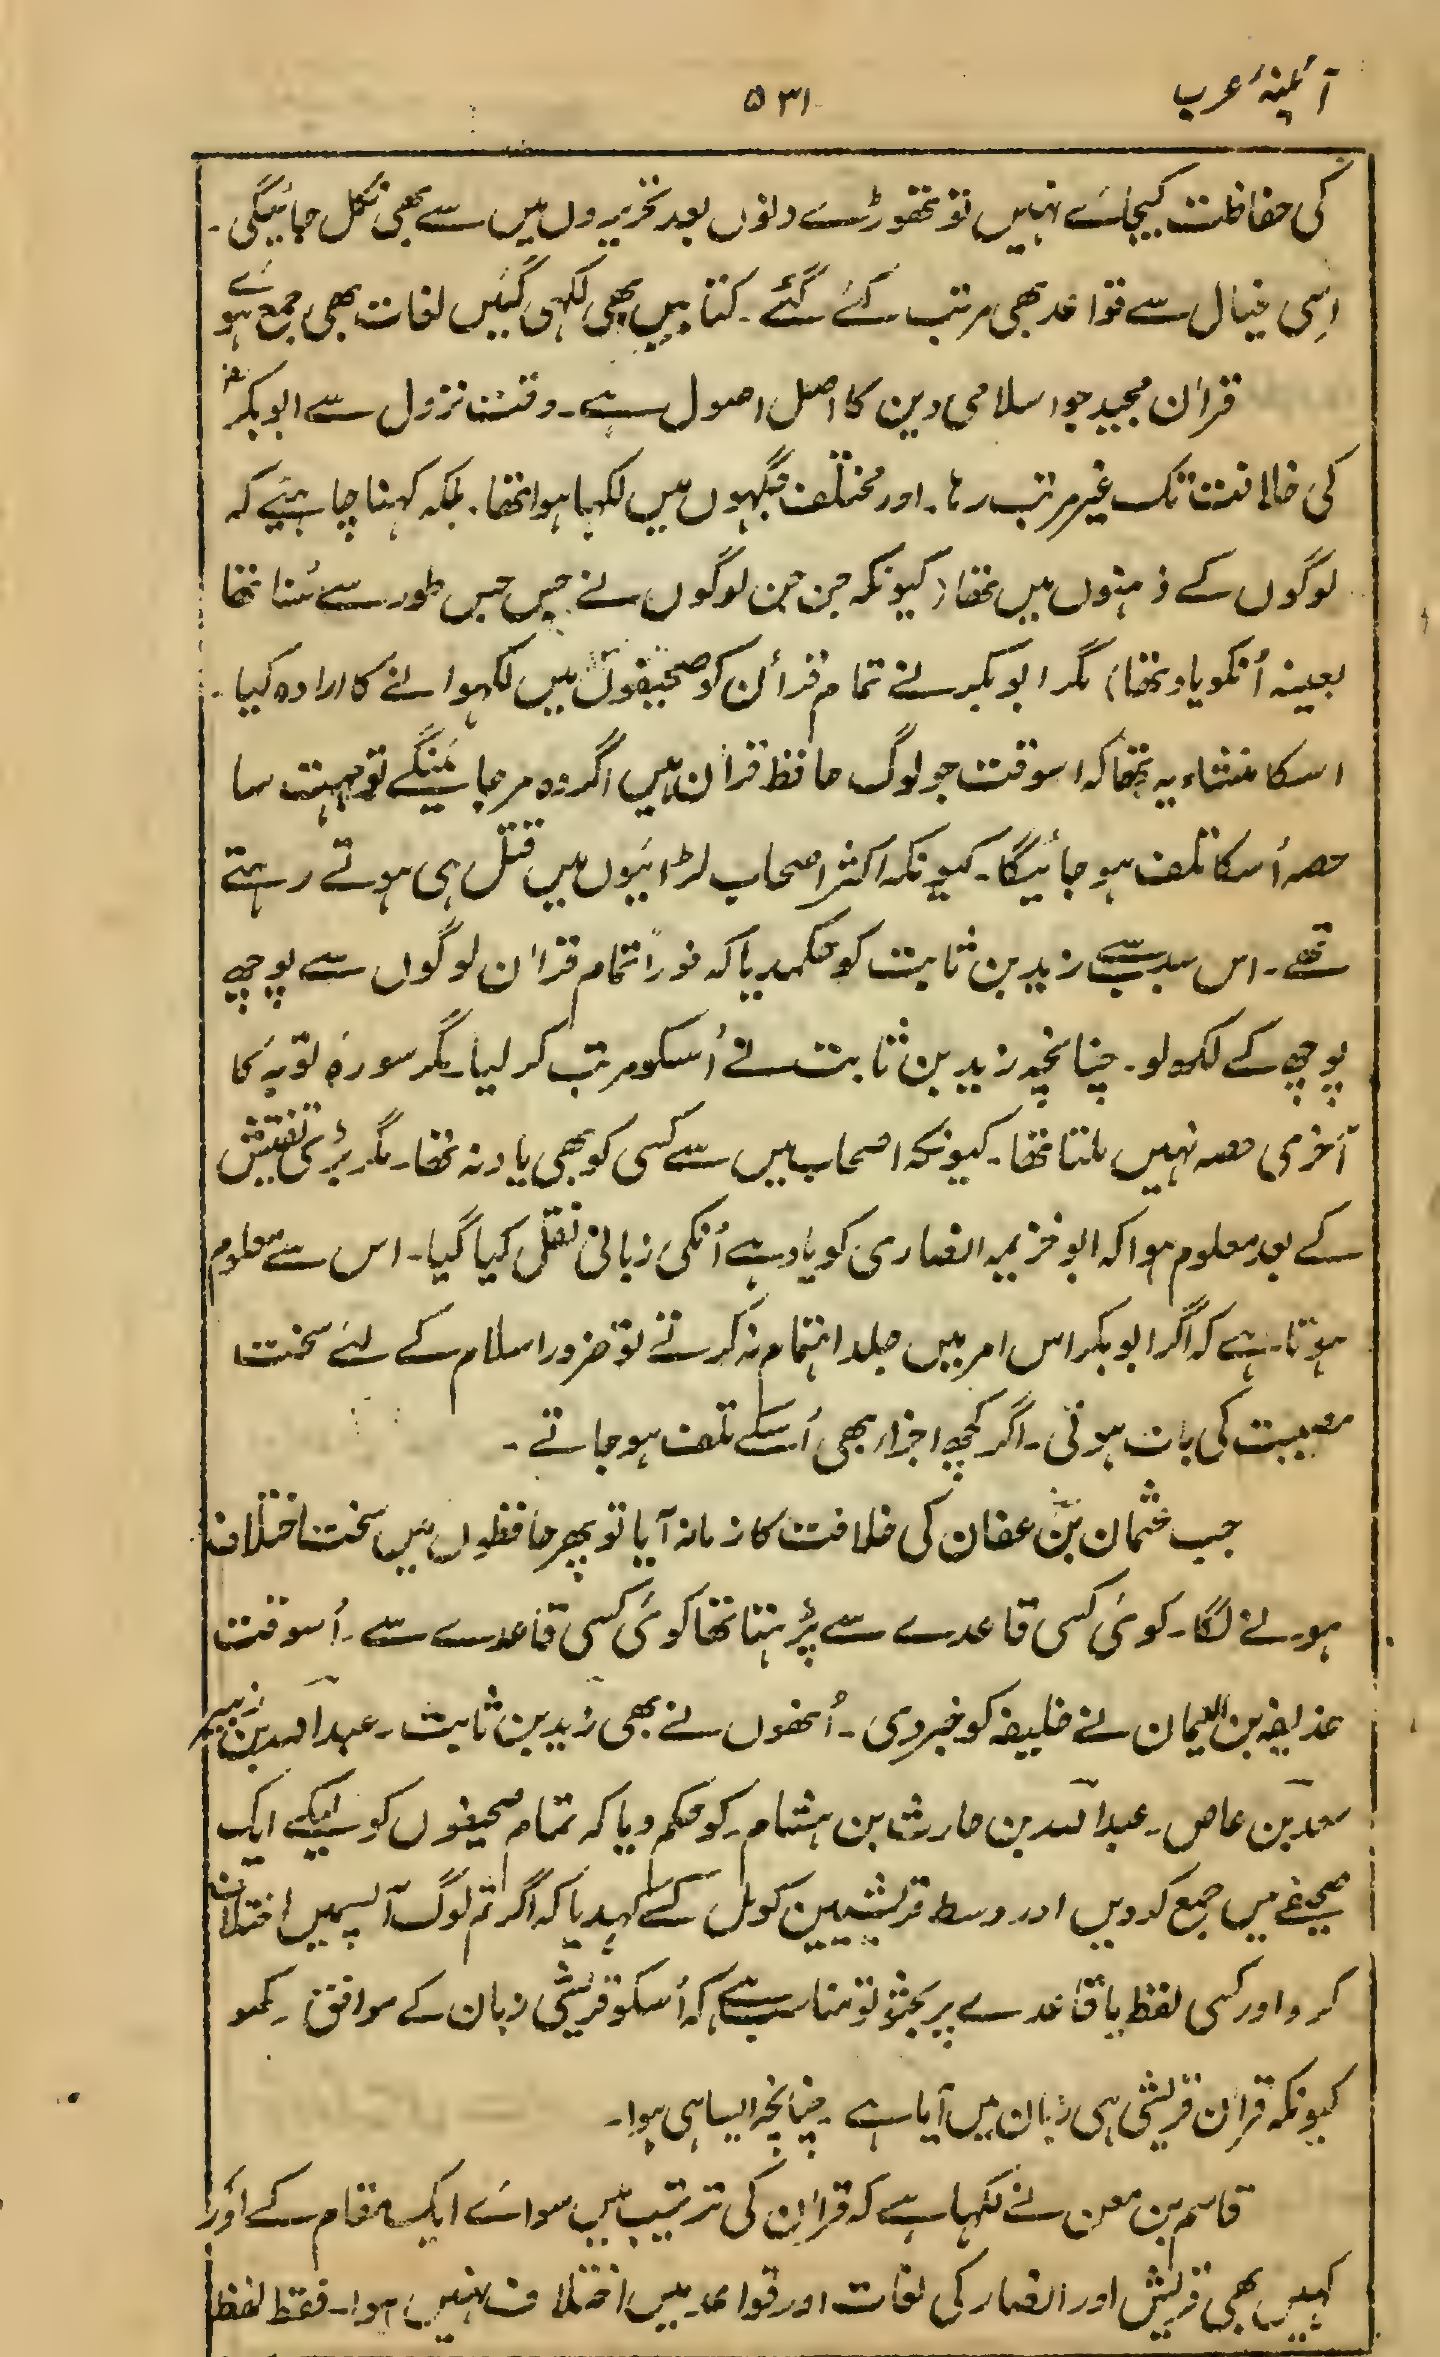 آئینۂ عرب
۵۳۱
کی حفاظت کیجائے نہیں تو تھوڑے دنوں بعد تحریروں میں سے بھی نکل جائیگی۔
اِسی خیال سے قواعد بھی مرتب کئے گئے۔ کتابیں بھی لکہی گئیں لغات بھی جمع ہوئے
قرآن مجید جو اسلامی دین کا اصل اصول ہے۔ وقت نزول سے ابوبکرؓ
کی خلافت تک غیر مرتب رہا۔ اور مختلف جگہوں میں لکہا ہوا تھا۔ بلکہ کہنا چاہئیے کہ
لوگوں کے ذہنوں میں تھا (کیونکہ جن جن لوگوں نے جس جس طور سے سُنا تھا
بعینہ اُنکو یاد تھا) مگر ابوبکر نے تمام قرآن کو صحیفوں میں لکہوانے کا ارادہ کیا۔
اسکا منشاء یہ تھا کہ اسوقت جو لوگ حافظ قرآن ہیں اگر وہ مرجائینگے تو بہت سا
حصہ اُسکا تلف ہو جائیگا۔ کیونکہ اکثر اصحاب لڑائیوں میں قتل ہی ہوتے رہتے
تھے۔ اس سبب سے زید بن ثابت کو حکمدیا کہ فوراً تمام قرآن لوگوں سے پوچھ
پوچھ کے لکھ لو۔ چنانچہ زید بن ثابت نے اُسکو مرتب کر لیا۔ مگر سورۂ توبہ کا
آخری حصہ نہیں ملتا تھا۔ کیونکہ اصحاب میں سے کسی کو بھی یاد نہ تھا۔ مگر بڑی تفتیش
کے بعد معلوم ہوا کہ ابو خزیمہ انصاری کو یاد ہے اُنکی زبانی نقل کیا گیا۔ اس سے معلوم
ہوتا ہے کہ اگر ابوبکر اس امر میں جلد اہتمام نہ کرتے تو ضرور اسلام کے لئے سخت
مصیبت کی بات ہوتی۔ اگر کچھ اجزاء بھی اُسکے تلف ہو جاتے۔
جب عثمان بن عفان کی خلافت کا زمانہ آیا تو پھر حافظوں میں سخت اختلاف
ہونے لگا۔ کوئی کسی قاعدے سے پڑہتا تھا کوئی کسی قاعدے سے۔ اُسوقت
حذیفہ بن الیمان نے خلیفہ کو خبر دی۔ اُنھوں نے بھی زید بن ثابت۔ عبداللہ بن زبیر
سعد بن عاص۔ عبداللہ بن حارث بن ہشام۔ کو حکم دیا کہ تمام صحیفوں کو لیکے ایک
صحیفے میں جمع کردیں اور وسط قریشیین کو کے کہدیا کہ اگر تم لوگ آپسمیں اختلاف
کرو اور کسی لفظ یا قاعدے پر بحثو تو مناسب ہے کہ اُسکو قریشی زبان کے موافق رکھو
کیونکہ قرآن قریشی ہی زبان میں آیا ہے۔ چنانچہ ایسا ہی ہوا۔
قاسم بن معن نے لکہا ہے کہ قرآن کی ترتیب میں سوائے ایک مقام کے اور
کہیں بھی قریش اور انصار کی لغات اور قواعد میں اختلاف نہیں ہوا۔ فقط لفظ